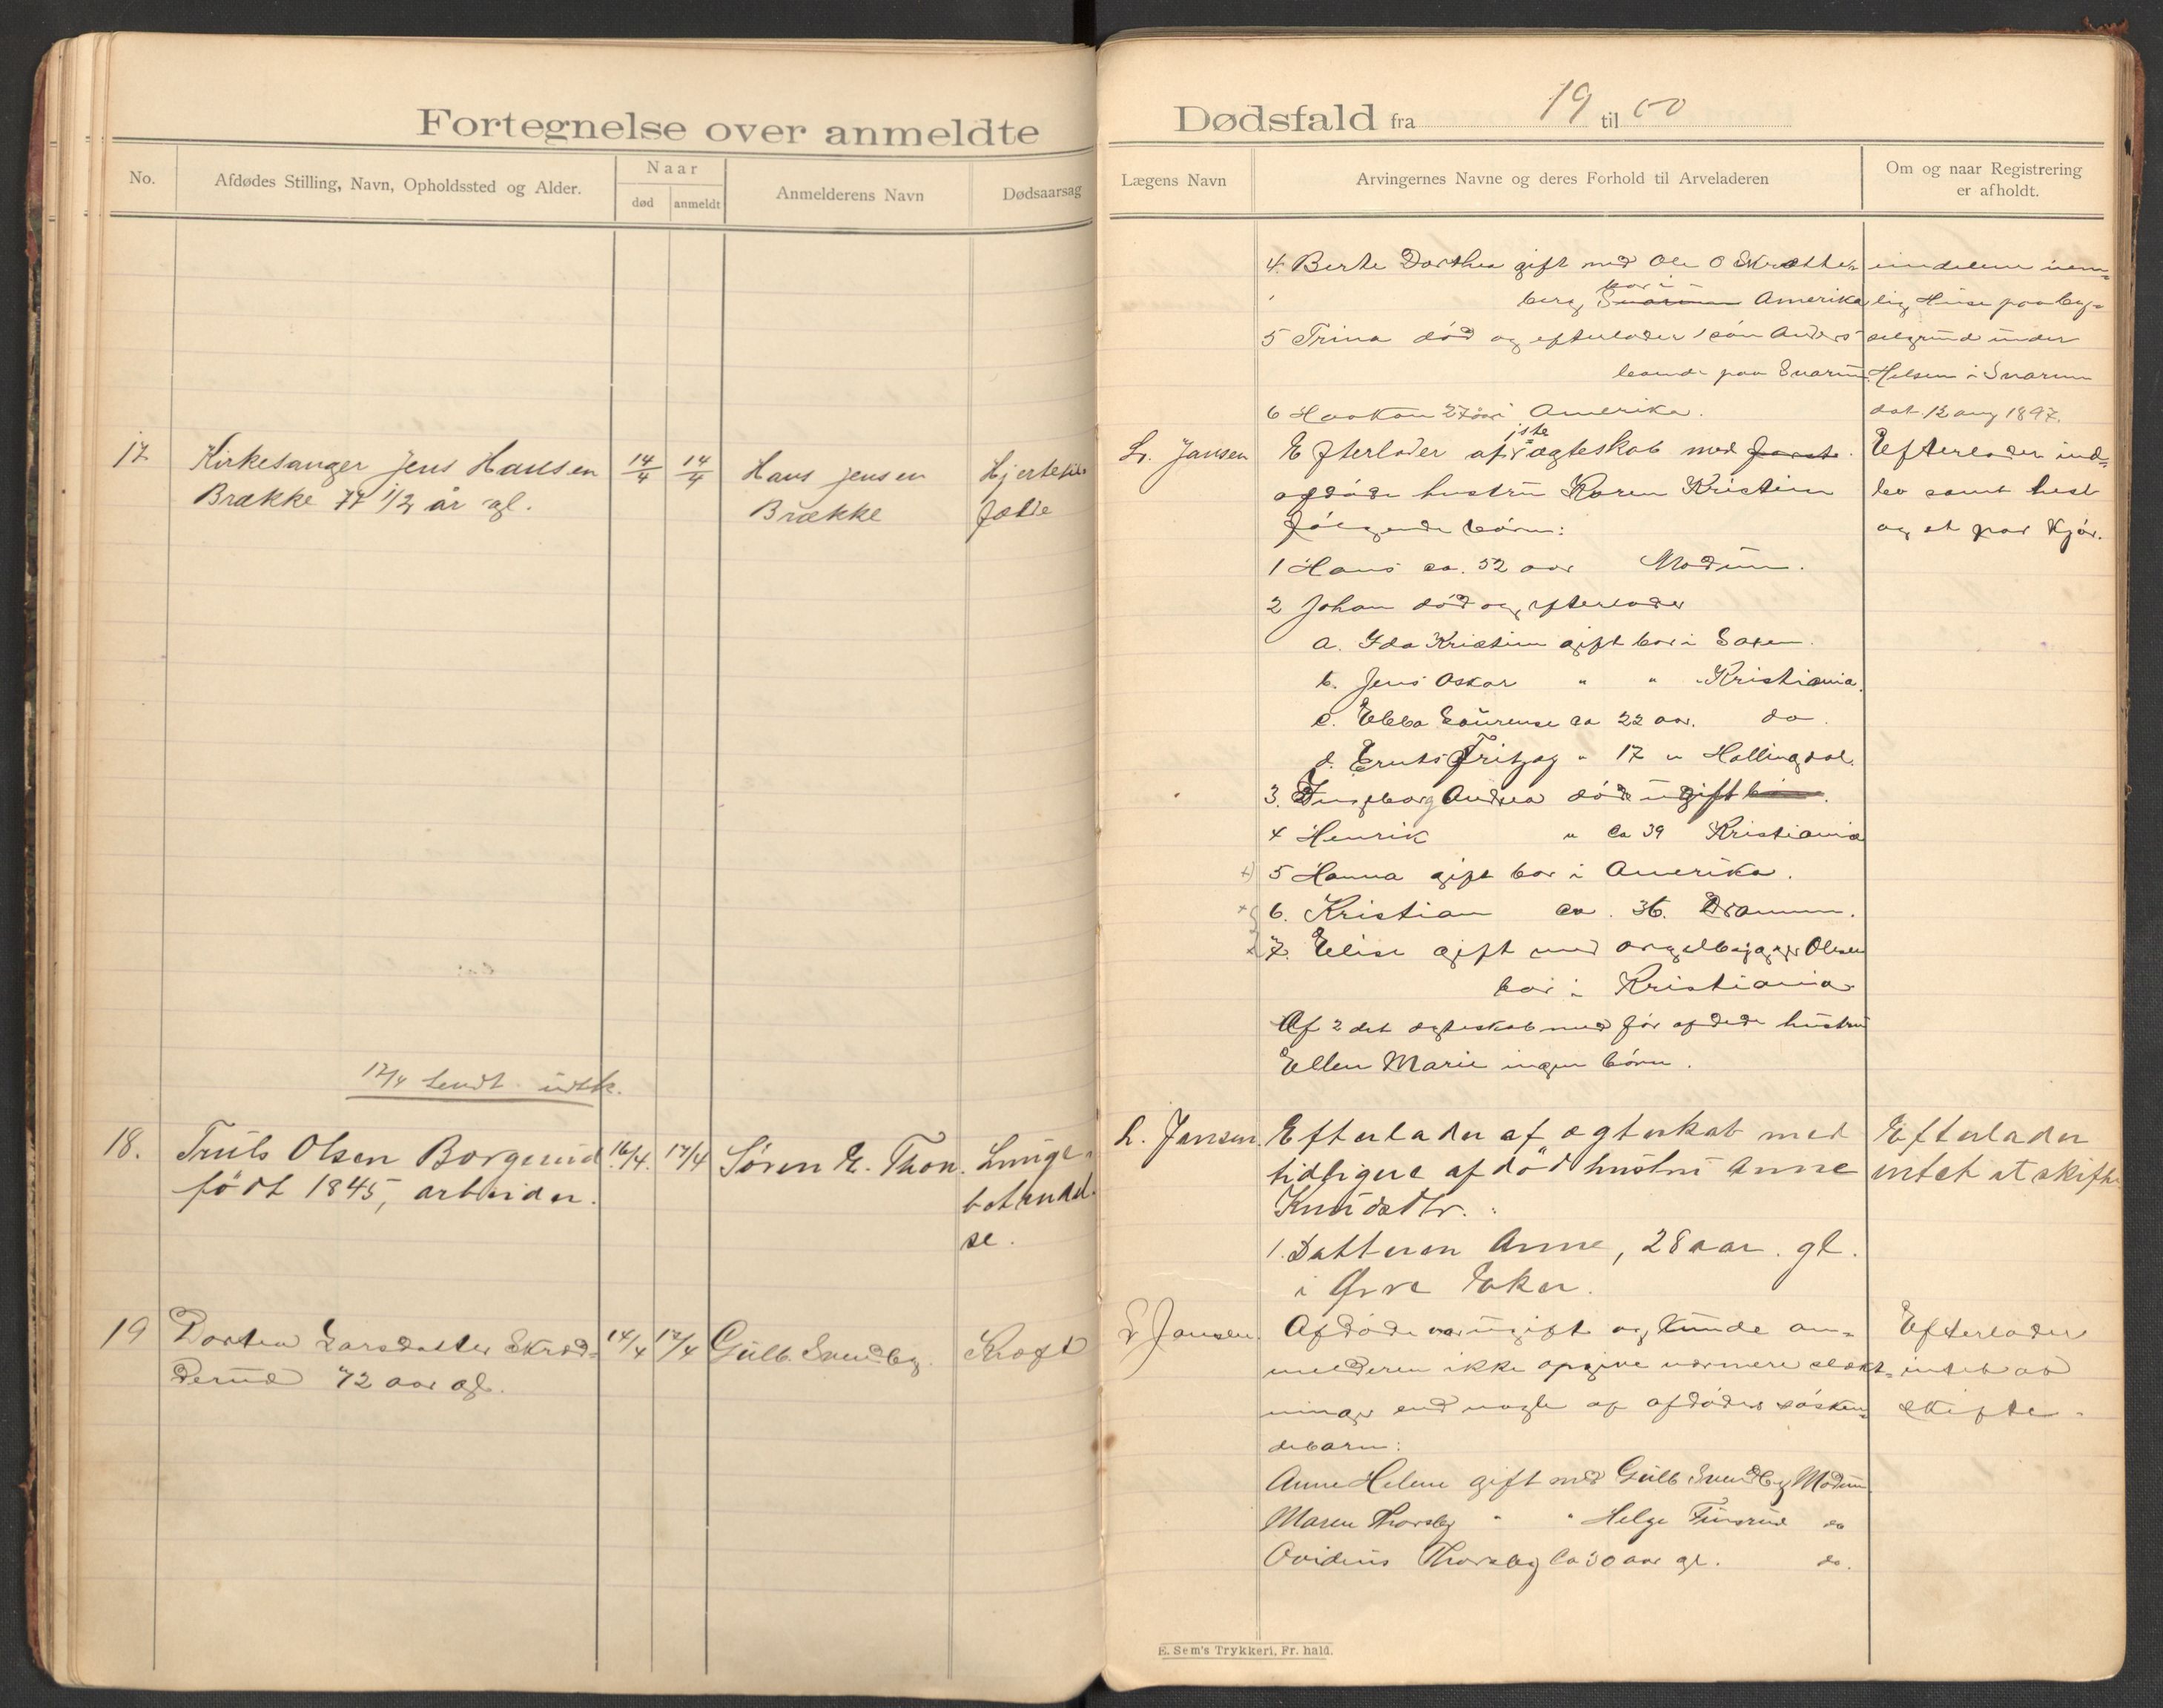 Fortegnelse over anmeldte
No.
Afdødes Stilling, Navn, Opholdssted og Alder.
Naar
død
anmeldt
Anmelderens Navn
Dødsaarsag
17
Kirkesanger Jens Hansen
14/4
14/4
Hans Jensen
Brække 77 1/2 år gl.
Brække
17/4 sendt
18.
Truls Olsen Borgerud
16/4.
17/4
Søren E. Thon.
Lunge-
født 1845, arbeider.
betændel-
se.
19
Dortea Larsdatter Skred-
14/4
17/4
Gulb. Svendby.
Kræft
derud 72 aar gl.
Dødsfald fra 19 til 00
Lægens Navn
Arvingernes Navne og deres Forhold til Arveladeren
Om og naar Registrering
er afholdt.
4. Berte Dorthea gift med Ole O Skrette-
eiendelene nem-
berg, bor i Amerika
lig Huse paa byg-
5 Trina død og efterlader 1 søn Anders
selgrund under
boende paa Snarum
Helsen i Snarum
6 Haakon 27 aar i Amerika.
dat. 12 aug 1897.
L. Jansen
Efterlader af 1ste ægteskab med
Efterlader ind-
afdøde hustru Karen Kristine
bo samt hest
følgende børn:
og et par kjør.
1 Hans ca. 52 aar Modum.
2 Johan død og efterlader
a. Ida Kristine gift bor i
b. Jens Oskar " " " Kristiania.
c. Ebba Laurense ca 22 aar. do.
d. Fritjog " 17 " Hallingdal.
3. Ingeborg Andrea død ugift
4 Henrik " ca 39 Kristiania
5 Hanna gift bor i Amerika.
6. Kristian ca. 36. Drammen.
7. Elise gift med orgelbygger Olsen
bor i Kristiania
Af 2 det ægteskab med før afdøde hustru
Ellen Marie ingen børn.
L. Jansen
Efterlader af ægteskab med
Efterlader
tidligere afdød hustru Anne
intet at skifte
Knudsdtr.:
1. Datteren Anne, 28 aar. gl.
i Øvre Eker.
L Jansen.
Afdøde var ugift og kunde an-
Efterlader
melderen ikke opgive nærmere slækt-
intet at
ninger end nogle af afdødes søsken-
skifte.
debarn:
Anne Helene gift med Gulb Svendby Modum
Maren Thorsby " " Helge Finsrud do
Ovidius Thorsby ca 30 aar gl. do.
E. Sem's Trykkeri, Fr. hald.